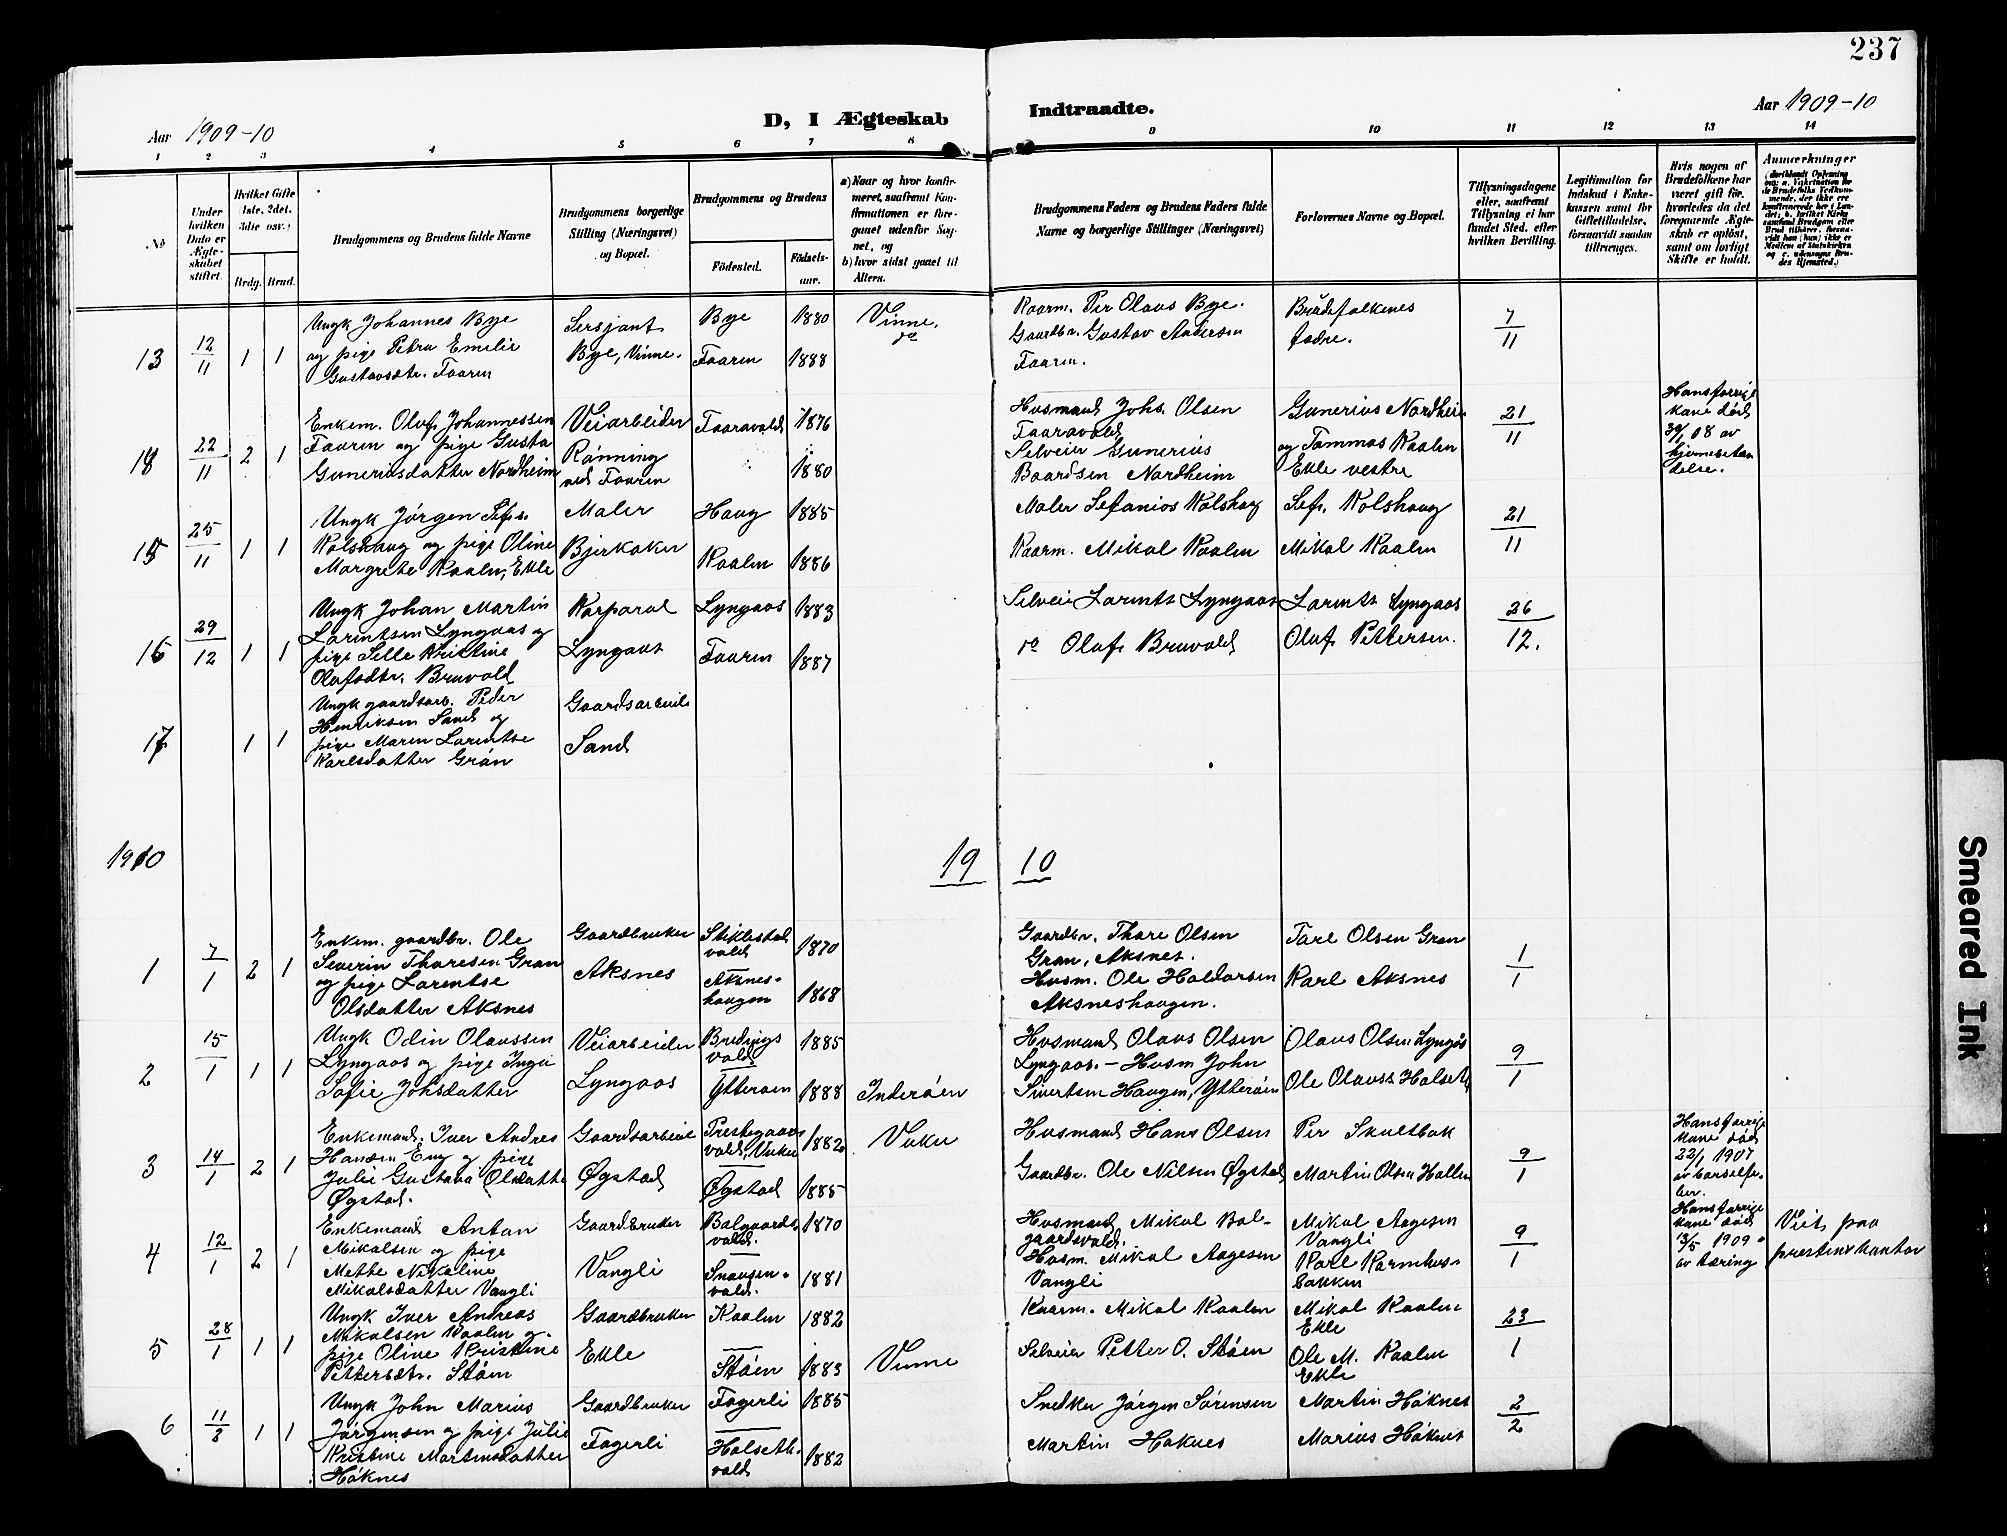 237
Aar 1909-10
D, I Ægteskab
Indtraadte.
Aar 1909-10
1 2 3 4 5 6 7 8 9 10 11 12 13 14
No
Under hvilken Dato er Ægteskabet stiftet.
Hvilket Gifte (1ste, 2det, 3die osv.)
Brdg. Brud.
Brudgommens og Brudens fulde Navne
Brudgommens borgerlige Stilling (Næringsvei) og Bopæl.
Brudgommens og Brudens
Födested.
Födselsaar.
a) Naar og hvor konfirmeret, saafremt Konfirmationen er foregaaet udenfor Sognet, og
b) hvor sidst gaaet til Alters.
Brudgommens Faders og Brudens Faders fulde Navne og borgerlige Stillinger (Næringsvei)
Forlovernes Navne og Bopæl.
Tillysningsdagene eller, saafremt Tillysning ei har fundet Sted, efter hvilken Bevilling.
Legitimation for Indskud i Enkekassen samt for Giftetilladelse, forsaavidt saadan tiltrænges.
Hvis nogen af Brudefolkene har været gift för, hvorledes da det foregaaende Ægteskab er oplöst, samt om lovligt Skifte er holdt.
Anmærkninger
13
12/11
1 1
Ungk Johannes Bye
og pige Petra Emilie
Gustavsdtr. Faaren
Sersjant
Bye, Vinne.
Bye 1880
Faaren 1888
Vinne.
do
Kaarm. Per Olaus Bye.
Gaardbr. Gustav Andersen
Faaren.
Brudefolkenes
fædre.
7/11
18
22/11
2 1
Enkem. Olaf Johannessen
Faaren og pige Gusta
Guneriusdatter Nordheim
Veiarbeider
Rønning
ved Faaren
Faaravald 1876
1880
Husmand Johs. Olsen
Faaravald
Selveier Gunerius
Baardsen Nordheim
Gunerius Nordheim
og Tommas Kaalen
Ekle vestre
21/11
Hans forrige
kone død
30/1 08 av
hjernebetæn
delse.
15
25/11
1 1
Ungk Jørgen Sefs.
Kolshaug og pige Oline
Margrete Kaalen, Ekle
Maler
Bjerkaker
Haug 1885
Kaalen 1886
Maler Sefanias Kolshaug
Kaarm. Mikal Kaalen
Sef. Kolshaug
Mikal Kaalen
21/11
16
29/12
1 1
Ungk Johan Martin
Larentsen Lyngaas og
pige Selle Kristine
Olafsdtr. Bruvold
Korporal
Lyngaas
Lyngaas 1883
Faaren 1887
Selveier Larents Lyngaas
do Olaf Bruvold
Larents Lyngaas
Olaf Pettersen.
26/12.
17
1 1
Ungk gaardsarb. Peder
Henriksen Sand og
pige Maren Larentse
Karlsdatter Grøn
Gaardsarbeide
Sand
1910
19 10
1
7/1
2 1
Enkem. gaardbr. Ole
Severin Thoresen Gran
og pige Larentse
Olsdatter Aksnes
Gaardbruker
Aksnes
Stiklestad
vald 1870
Aksnes-
haugen 1868
Gaardbr. Thore Olsen
Gran, Aksnes.
Husm. Ole Haldorsen
Aksneshaugen.
Tarl Olsen Gran
Karl Aksnes
1/1
2
15/1
1 1
Ungk Odin Olaussen
Lyngaas og pige Inga
Sofie Johsdatter
Veiarbeider
Lyngaas
Bredings
vald 1885
Ytterøen 1888
Inderøen
Husmand Olaus Olsen
Lyngaas. - Husm John
Sivertsen Haugen, Ytterøen
Olaus Olsen Lyngås
Ole Olauss Halseth
9/1
3
14/1
2 1
Enkemand. Iver Andres
Hansen Eng og pige
Julie Gustava Olsdatte
Øgstad.
Gaardsarbeide
Øgstad
Prestegaards
vald, Vuku 1882
Øgstad 1885
Vuku
Husmand Hans Olsen
Gaardbr. Ole Nilsen Øgstad
Per Skultbak
Martin Olsen Hallem
9/1
Hans forrige
kone død
22/1 1907
av barselfe-
ber.
4
12/1
2 1
Enkemand Anton
Mikalsen og pige
Methe Nikoline
Mikalsdatter Vangli
Gaardbruker
Vangli
Balgaards-
vald. 1870
Snausen-
vald. 1881
Husmand Mikal Bal-
gaardsvald.
Husm. Mikal Aagesen
Vangli
Mikal Aagesen
Vangli
Karl Karmhus-
bakken
9/1
Hans forrige
kone død
13/5 1909
av tæring
Viet paa
prestens kontor
5
28/1
1 1
Ungk Iver Andreas
Mikalsen Kaalen og
pige Oline Kristine
Pettersdtr. Støen
Gaardbruker
Ekle
Kaalen 1882
Støen 1883
Vinne
Kaarm. Mikal Kaalen
Selveier Petter O. Støen
Mikal Kaalen
Ekle
Ole M. Kaalen
Ekle
23/1
6
11/8
1 1
Ungk John Marius
Jørgensen og pige Julie
Kristine Martinsdatter
Høknes
Gaardbruker
Fagerli
Fagerli 1885
Halseth-
vald 1882
Snedker Jørgen Sørensen
Martin Høknes
Martin Høknes
Marius Høknes
2/2
Smeared Ink